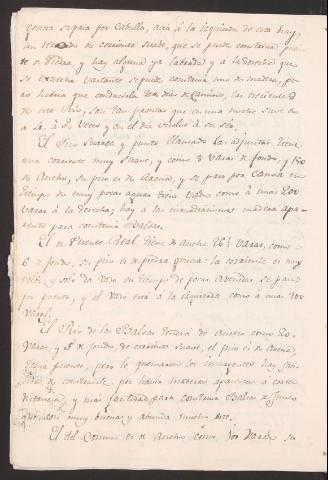 gruesa se pasa por Cabulla, acá á la izquierda de esta hay
un de corriente suabe, que se puede construir puen
te de Piedra, y hay alguna ya labrada y á la derecha que
se estrecha bastante se puede construir una de madera, pe
ro habria que conducirla de dias de Camino, las crecientes
de este Rio, son tan prontas que en una noche suve de
a 4, á 5 veces y en el dia vuelve á su ser.
El Rio Suarez y punto llamado la adjuntas tiene
una corriente muy suave, y como 8 varas de fondo, y 150
de Ancho, su piso es de Arena, y se pasa por Canoa en
tiempo de muy pocas aguas tiene vado como á unas 200
varas á la derecha; hay á las inmediaciones madera apa
rente para construir Balsas.
El de Puente Real tiene de ancho 26½ varas, como
6 de fondo, su piso es de piedra gruesa: la corriente es muy
veloz, y solo da vado en tiempo de pocas avenidas se pasa
por puente, y el vado está á la izquierda como á unas 100
varas.
El Rio de las Balsas tendrá de Ancho como 20
varas, y 5 de fondo, de corriente suave, el piso es de Arena,
tenia puente, pero lo quemaron los insurgentes hay faci
lidad de construirle, por haber maderas aparentes á corta
distancia, y mas facilidad para construir Balsas de Junco
que son muy buenas y abunda mucho este.
El del Comun es de ancho como 100 varas su